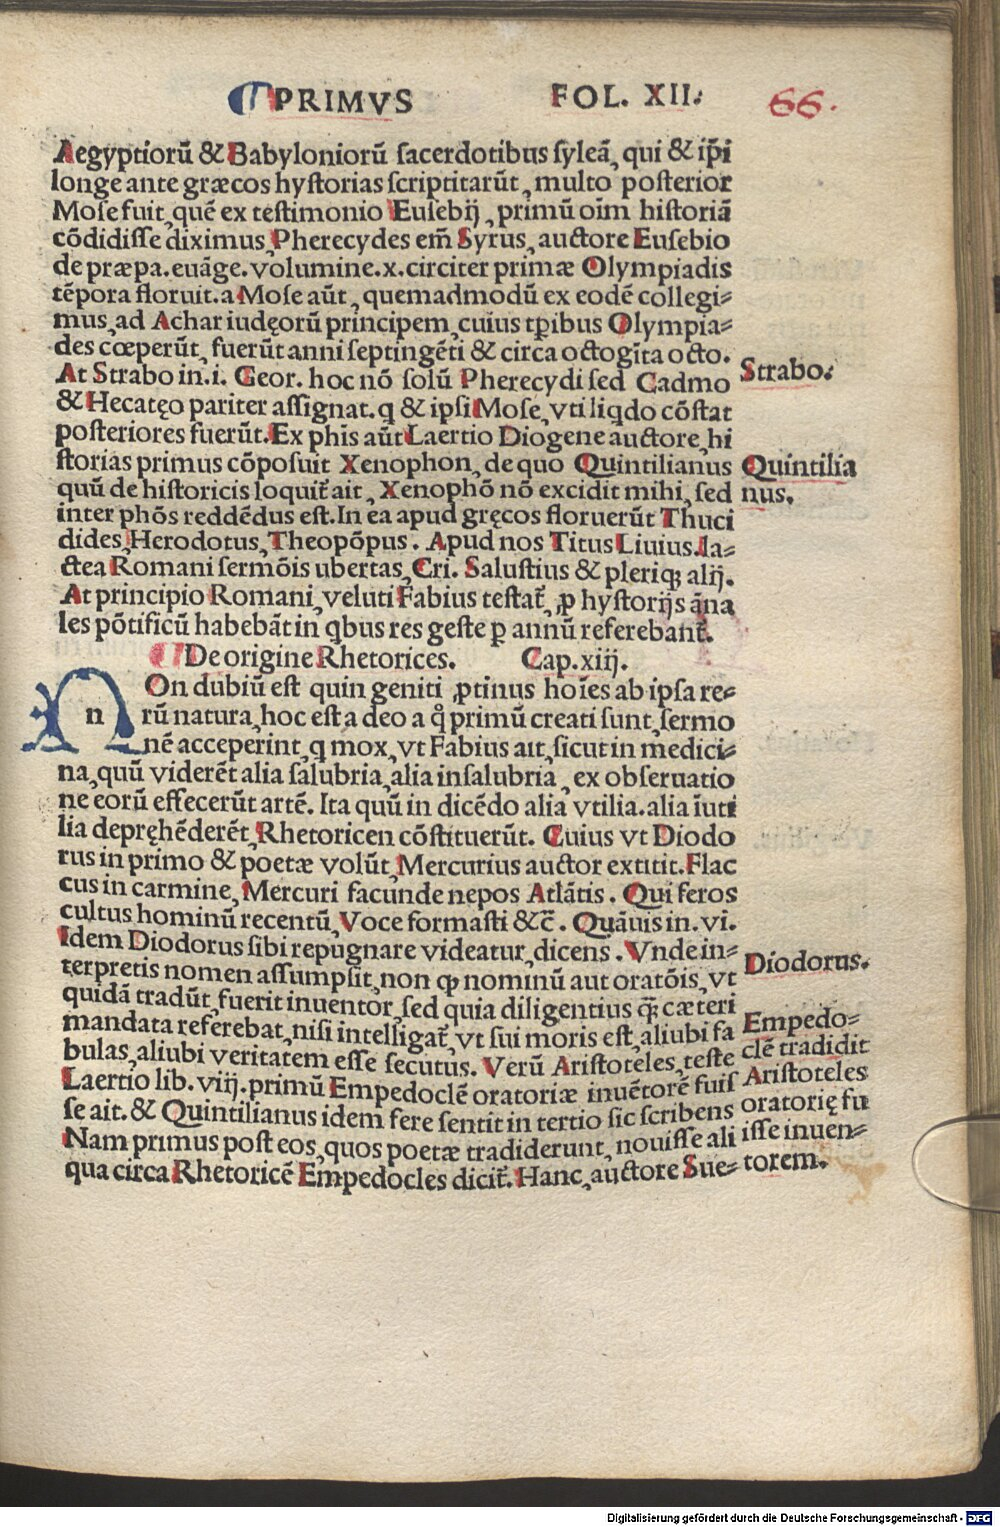 PRIMVS FOL. XII.
66.
Aegyptiorũ & Babyloniorũ ſacerdotibus ſyleã, qui & ip̃i
longe ante græcos hyſtorias ſcriptitarũt, multo poſterior
Moſe fuit, quẽ ex teſtimonio Euſebij, primũ oĩm hiſtoriã
cõdidiſſe diximus, Pherecydes em̃ Syrus, auctore Euſebio
de præpa. euãge. volumine. x. circiter primæ Olympiadis
tẽpora floruit. a Moſe aũt, quemadmodũ ex eodẽ collegi⸗
mus, ad Achar iudęorũ principem, cuius tp̃ibus Olympia⸗
des cœperũt, fuerũt anni ſeptingẽti & circa octogĩta octo.
At Strabo in. i. Geor. hoc nõ ſolũ Pherecydi ſed Cadmo
& Hecatęo pariter aſſignat. q & ipſi Moſe, vti liqdo cõſtat
poſteriores fuerũt. Ex phĩs aũt Laertio Diogene auctore, hi
ſtorias primus cõpoſuit Xenophon, de quo Quintilianus
quũ de hiſtoricis loquit̃ ait, Xenophõ nõ excidit mihi, ſed
inter phõs reddẽdus eſt. In ea apud gręcos floruerũt Thuci
dides, Herodotus, Theopõpus. Apud nos Titus Liuius. la⸗
ctea Romani ſermõis ubertas, Cri. Saluſtius & pleriqꝫ alij.
At principio Romani, veluti Fabius teſtat̃, ꝓ hyſtorijs ãna
les põtificũ habebãt in qbus res geſte ꝑ annũ referebant̃.
De origine Rhetorices. Cap. xiij.
n
On dubiũ eſt quin geniti ꝓtinus hoĩes ab ipſa re⸗
rũ natura, hoc eſt a deo a q̊ primũ creati ſunt, ſermo
nẽ acceperint, q mox, vt Fabius ait, ſicut in medici⸗
na, quũ viderẽt alia ſalubria, alia inſalubria, ex obſeruatio
ne eorũ effecerũt artẽ. Ita quũ in dicẽdo alia vtilia. alia ĩuti
lia depręhẽderẽt, Rhetoricen cõſtituerũt. Cuius vt Diodo
rus in primo & poetæ volũt, Mercurius auctor extitit. Flac
cus in carmine, Mercuri facunde nepos Atlãtis. Qui feros
cultus hominũ recentũ, Voce formaſti &c̃. Quãuis in. vi.
Idem Diodorus ſibi repugnare videatur, dicens. Vnde in⸗
terpretis nomen aſſumpſit, non ꝙ nominũ aut oratõis, vt
quidã tradũt, fuerit inuentor, ſed quia diligentius q̃ꝫ cæteri
mandata referebat, niſi intelligat̃, vt ſui moris eſt, aliubi fa
bulas, aliubi veritatem eſſe ſecutus. Verũ Ariſtoteles, teſte
Laertio lib. viij. primũ Empedoclẽ oratoriæ inuẽtorẽ fuiſ
ſe ait. & Quintilianus idem fere ſentit in tertio ſic ſcribens
Nam primus poſt eos, quos poetæ tradiderunt, nouiſſe ali
qua circa Rhetoricẽ Empedocles dicit̃. Hanc, auctore Sue⸗
Strabo.
Quintilia
nus.
Diodorus.
Empedo⸗
clẽ tradidit
Ariſtoteles
oratorię fu
iſſe inuen⸗
torem.
Digitalisierung gefördert durch die Deutsche Forschungsgemeinschaft - DFG